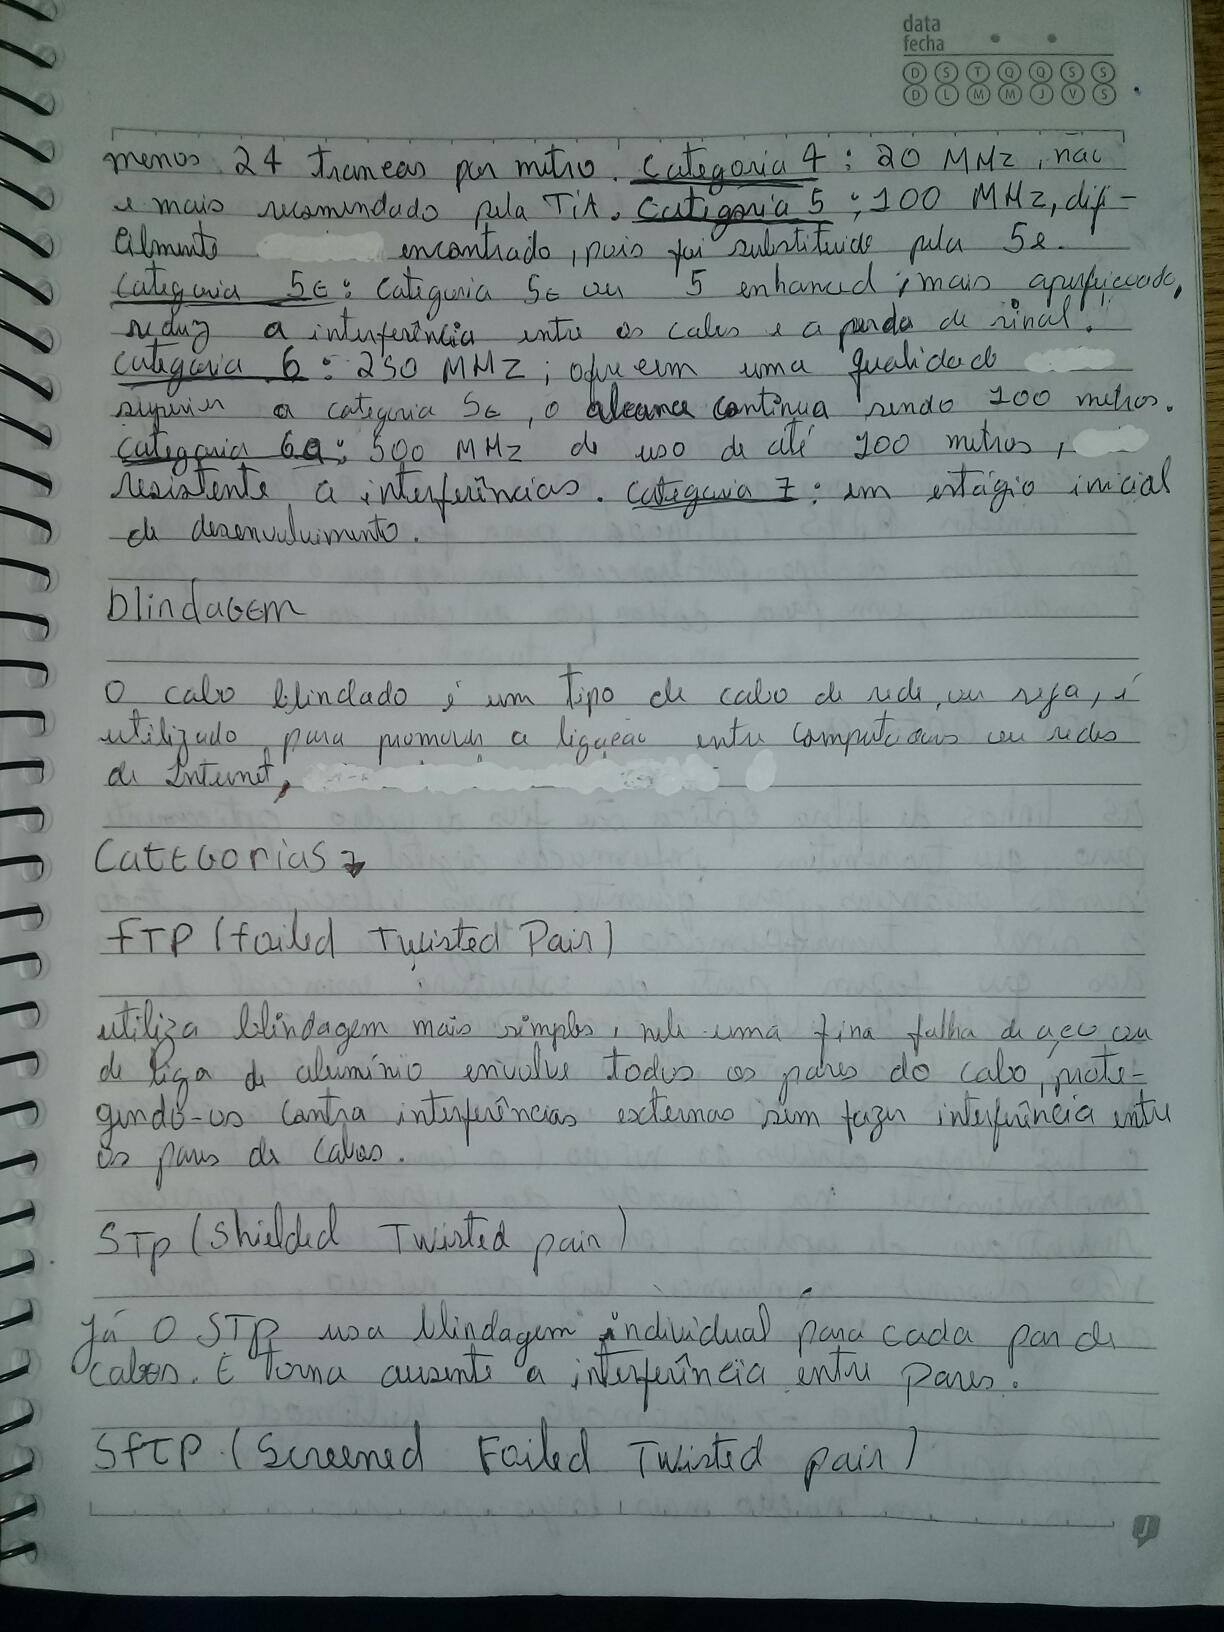 data
fecha
D S T Q Q S S
D L M M J V S
menos 24 trancas por metro. Categoria 4: 20 MHz, não
é mais recomendado pela TiA. Categoria 5: 100 MHz, difi-
cilmente encontrado, pois foi substituido pela 5e.
categoria 5E: categoria 5E ou 5 enhanced; mais aperfeiçoado,
reduz a interferência entre os cabos e a perda de sinal.
categoria 6: 250 MHz; oferecem uma qualidade
superior a categoria 5E, o alcance continua sendo 100 metros.
categoria 6a: 500 MHz de uso de até 100 metros,
resistente a interferências. categoria 7: em estágio inicial
de desenvolvimento.
blindaGEM
O cabo blindado é um tipo de cabo de rede, ou seja, é
utilizado para promover a ligação entre computadores ou redes
de Internet,
CatEGorias
fTP (foiled Twisted Pair)
utiliza blindagem mais simples, nele uma fina folha de aço ou
de liga de alumínio envolve todos os pares do cabo, prote-
gendo-os contra interferências externas sem fazer interferência entre
os pares de cabos.
STp (Shielded Twisted pair)
Já O STp usa blindagem individual para cada par de
cabos. E torna ausente a interferência entre pares.
SfTP (Screened Foiled Twisted pair)